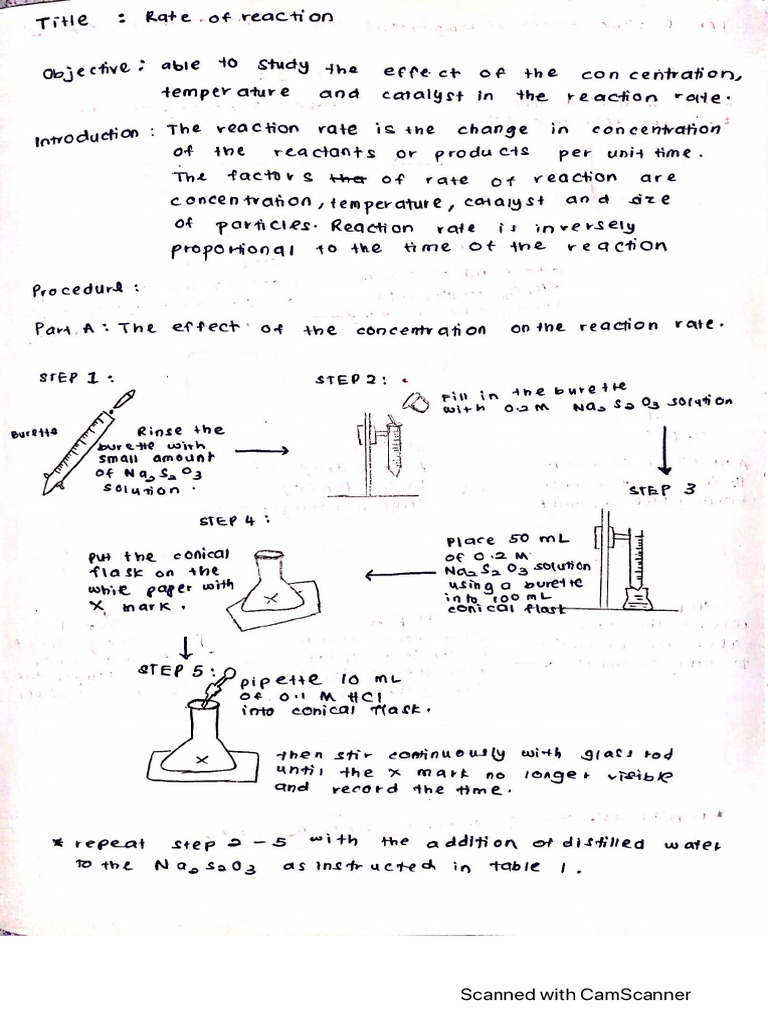 Title : Rate of reaction
Objective : able to study the effect of the concentration,
temperature and catalyst in the reaction rate.
Introduction : The reaction rate is the change in concentration
of the reactants or products per unit time.
The factors ther of rate of reaction are
concentration, temperature, catalyst and size
of particles. Reaction rate is inversely
proportional to the time of the reaction
Procedure :
Part A : The effect of the concentration on the reaction rate.
STEP 1 :
Burette
Rinse the
burette with
small amount
of Na2S2O3
solution.
STEP 2 :
Fill in the burette
with 0.2 M Na2S2O3 solution
STEP 3
Place 50 mL
of 0.2 M
Na2S2O3 solution
using a burette
into 100 mL
conical flask
STEP 4 :
Put the conical
flask on the
white paper with
X mark.
X
STEP 5 :
pipette 10 mL
of 0.1 M HCl
into conical flask.
X
then stir continuously with glass rod
until the x mark no longer visible
and record the time.
* repeat step 2 - 5 with the addition of distilled water
to the Na2S2O3 as instructed in table 1.
Scanned with CamScanner